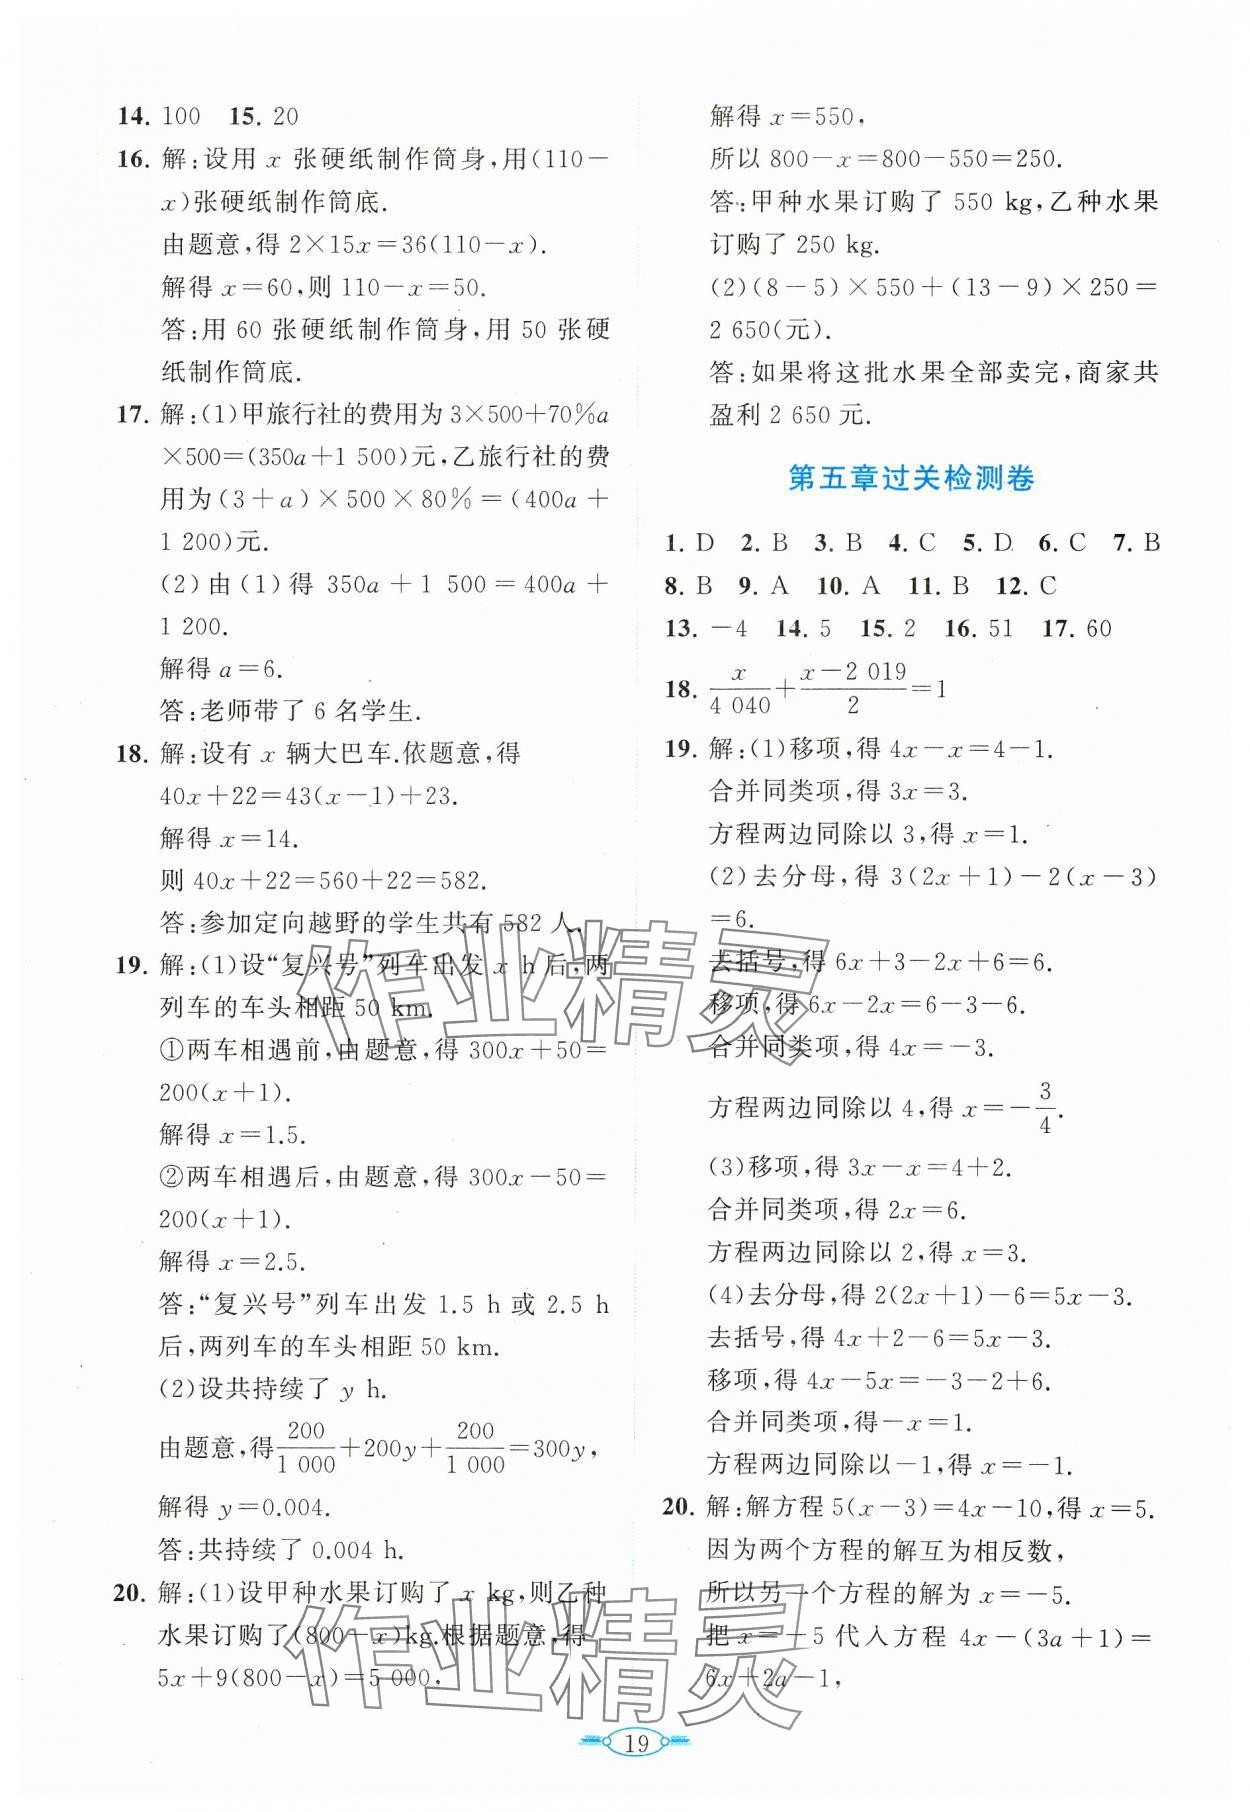 14. 100  15. 20
16. 解:设用 x 张硬纸制作筒身,用(110-
x)张硬纸制作筒底.
由题意,得 2×15x=36(110-x).
解得 x=60,则 110-x=50.
答:用 60 张硬纸制作筒身,用 50 张硬
纸制作筒底.
17. 解:(1)甲旅行社的费用为 3×500+70%a
×500=(350a+1 500)元,乙旅行社的费
用为(3+a)×500×80%=(400a+
1 200)元.
(2)由(1)得 350a+1 500=400a+
1 200.
解得 a=6.
答:老师带了 6 名学生.
18. 解:设有 x 辆大巴车.依题意,得
40x+22=43(x-1)+23.
解得 x=14.
则 40x+22=560+22=582.
答:参加定向越野的学生共有 582 人.
19. 解:(1)设“复兴号”列车出发 x h 后,两
列车的车头相距 50 km.
①两车相遇前,由题意,得 300x+50=
200(x+1).
解得 x=1.5.
②两车相遇后,由题意,得 300x-50=
200(x+1).
解得 x=2.5.
答:“复兴号”列车出发 1.5 h 或 2.5 h
后,两列车的车头相距 50 km.
(2)设共持续了 y h.
由题意,得200/1 000+200y+200/1 000=300y,
解得 y=0.004.
答:共持续了 0.004 h.
20. 解:(1)设甲种水果订购了 x kg,则乙种
水果订购了(800-x)kg.根据题意,得
5x+9(800-x)=5 000,
解得 x=550,
所以 800-x=800-550=250.
答:甲种水果订购了 550 kg,乙种水果
订购了 250 kg.
(2)(8-5)×550+(13-9)×250=
2 650(元).
答:如果将这批水果全部卖完,商家共
盈利 2 650 元.
第五章过关检测卷
1. D  2. B  3. B  4. C  5. D  6. C  7. B
8. B  9. A  10. A  11. B  12. C
13. -4  14. 5  15. 2  16. 51  17. 60
18. x/4 040+(x-2 019)/2=1
19. 解:(1)移项,得 4x-x=4-1.
合并同类项,得 3x=3.
方程两边同除以 3,得 x=1.
(2)去分母,得 3(2x+1)-2(x-3)
=6.
去括号,得 6x+3-2x+6=6.
移项,得 6x-2x=6-3-6.
合并同类项,得 4x=-3.
方程两边同除以 4,得 x=-3/4.
(3)移项,得 3x-x=4+2.
合并同类项,得 2x=6.
方程两边同除以 2,得 x=3.
(4)去分母,得 2(2x+1)-6=5x-3.
去括号,得 4x+2-6=5x-3.
移项,得 4x-5x=-3-2+6.
合并同类项,得-x=1.
方程两边同除以-1,得 x=-1.
20. 解:解方程 5(x-3)=4x-10,得 x=5.
因为两个方程的解互为相反数,
所以另一个方程的解为 x=-5.
把 x=-5 代入方程 4x-(3a+1)=
6x+2a-1,
19
作业精灵
作业精灵